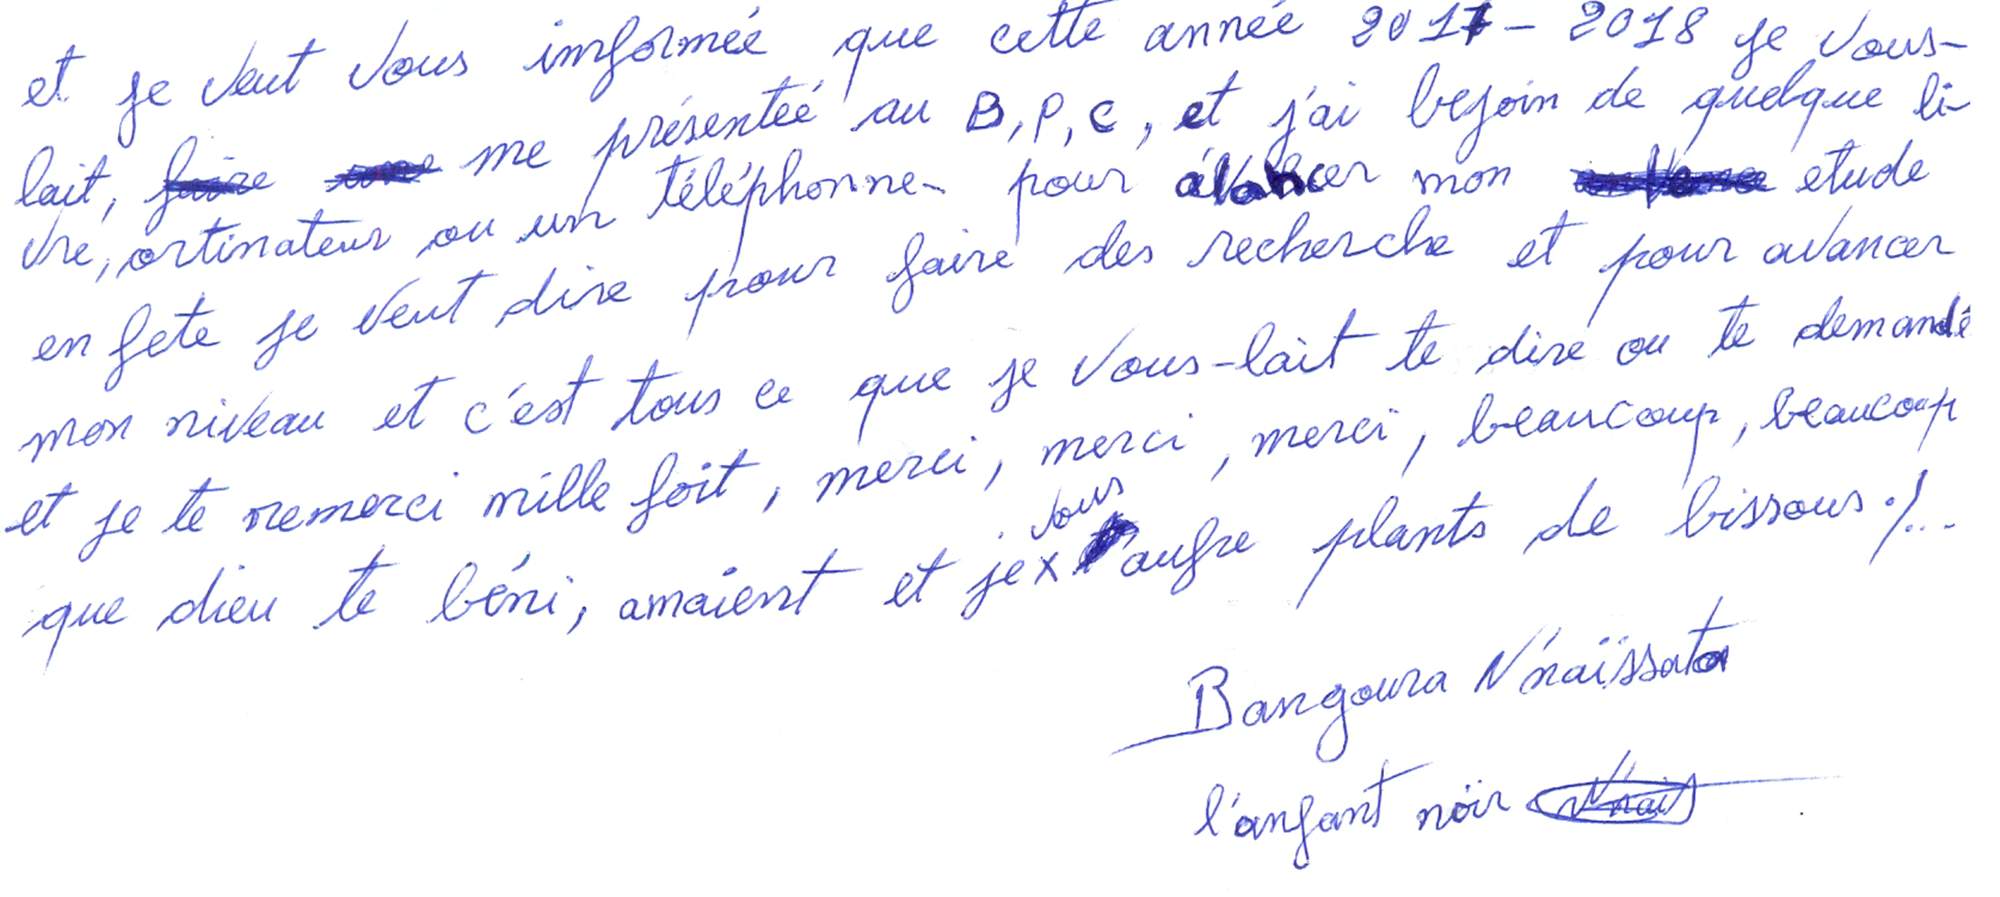 et je veut vous informée que cette année 2017 - 2018 je vous-
lait, faire une me présenteé au B, P, C, et j'ai besoin de quelque li-
vre, ortinateur ou un téléphonne - pour avancer mon etude
en fete je veut dire pour faire des recherche et pour avancer
mon niveau et c'est tous ce que je vous-lait te dire ou te demandé
et je te remerci mille foit, merci, merci, merci, beaucoup, beaucoup
que dieu te béni, amaient et je x vous aufre plants de bissous !...
Bangoura N'naïssata
l'anfant noir N'nais